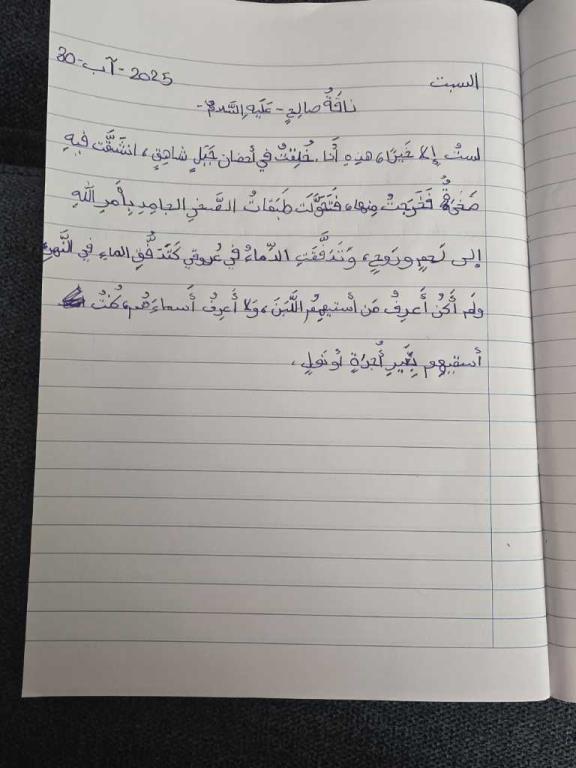 السبت 30-آب-2025
ناقَةُ صالِحٍ - عَلَيهِ السَّلام -
لستُ إلا خَيرًا، هذِهِ أنا. خُلِقتُ في أحضان جَبَلٍ شاهِقٍ، انشَقَّت فيهِ
صَخرَةٌ فَخَرجتُ مِنها، فَتَحَوَّلَت طَبَقاتُ الصَّخرِ الجامِدِ بِأَمرِ اللهِ
إلى لَحمٍ وروحٍ، وَتَدَفَّقَتِ الدِّماءُ في عُروقي كَتَدَفُّقِ الماءِ في النَّهرِ
ولم أكُن أَعرِفُ مَن أَسقيهِمُ اللَّبَنَ، وَلا أَعرِفُ أَسماءَهُم، كُنتُ
أسقيهِم بِغَيرِ أُجرَةٍ أو نَولٍ.